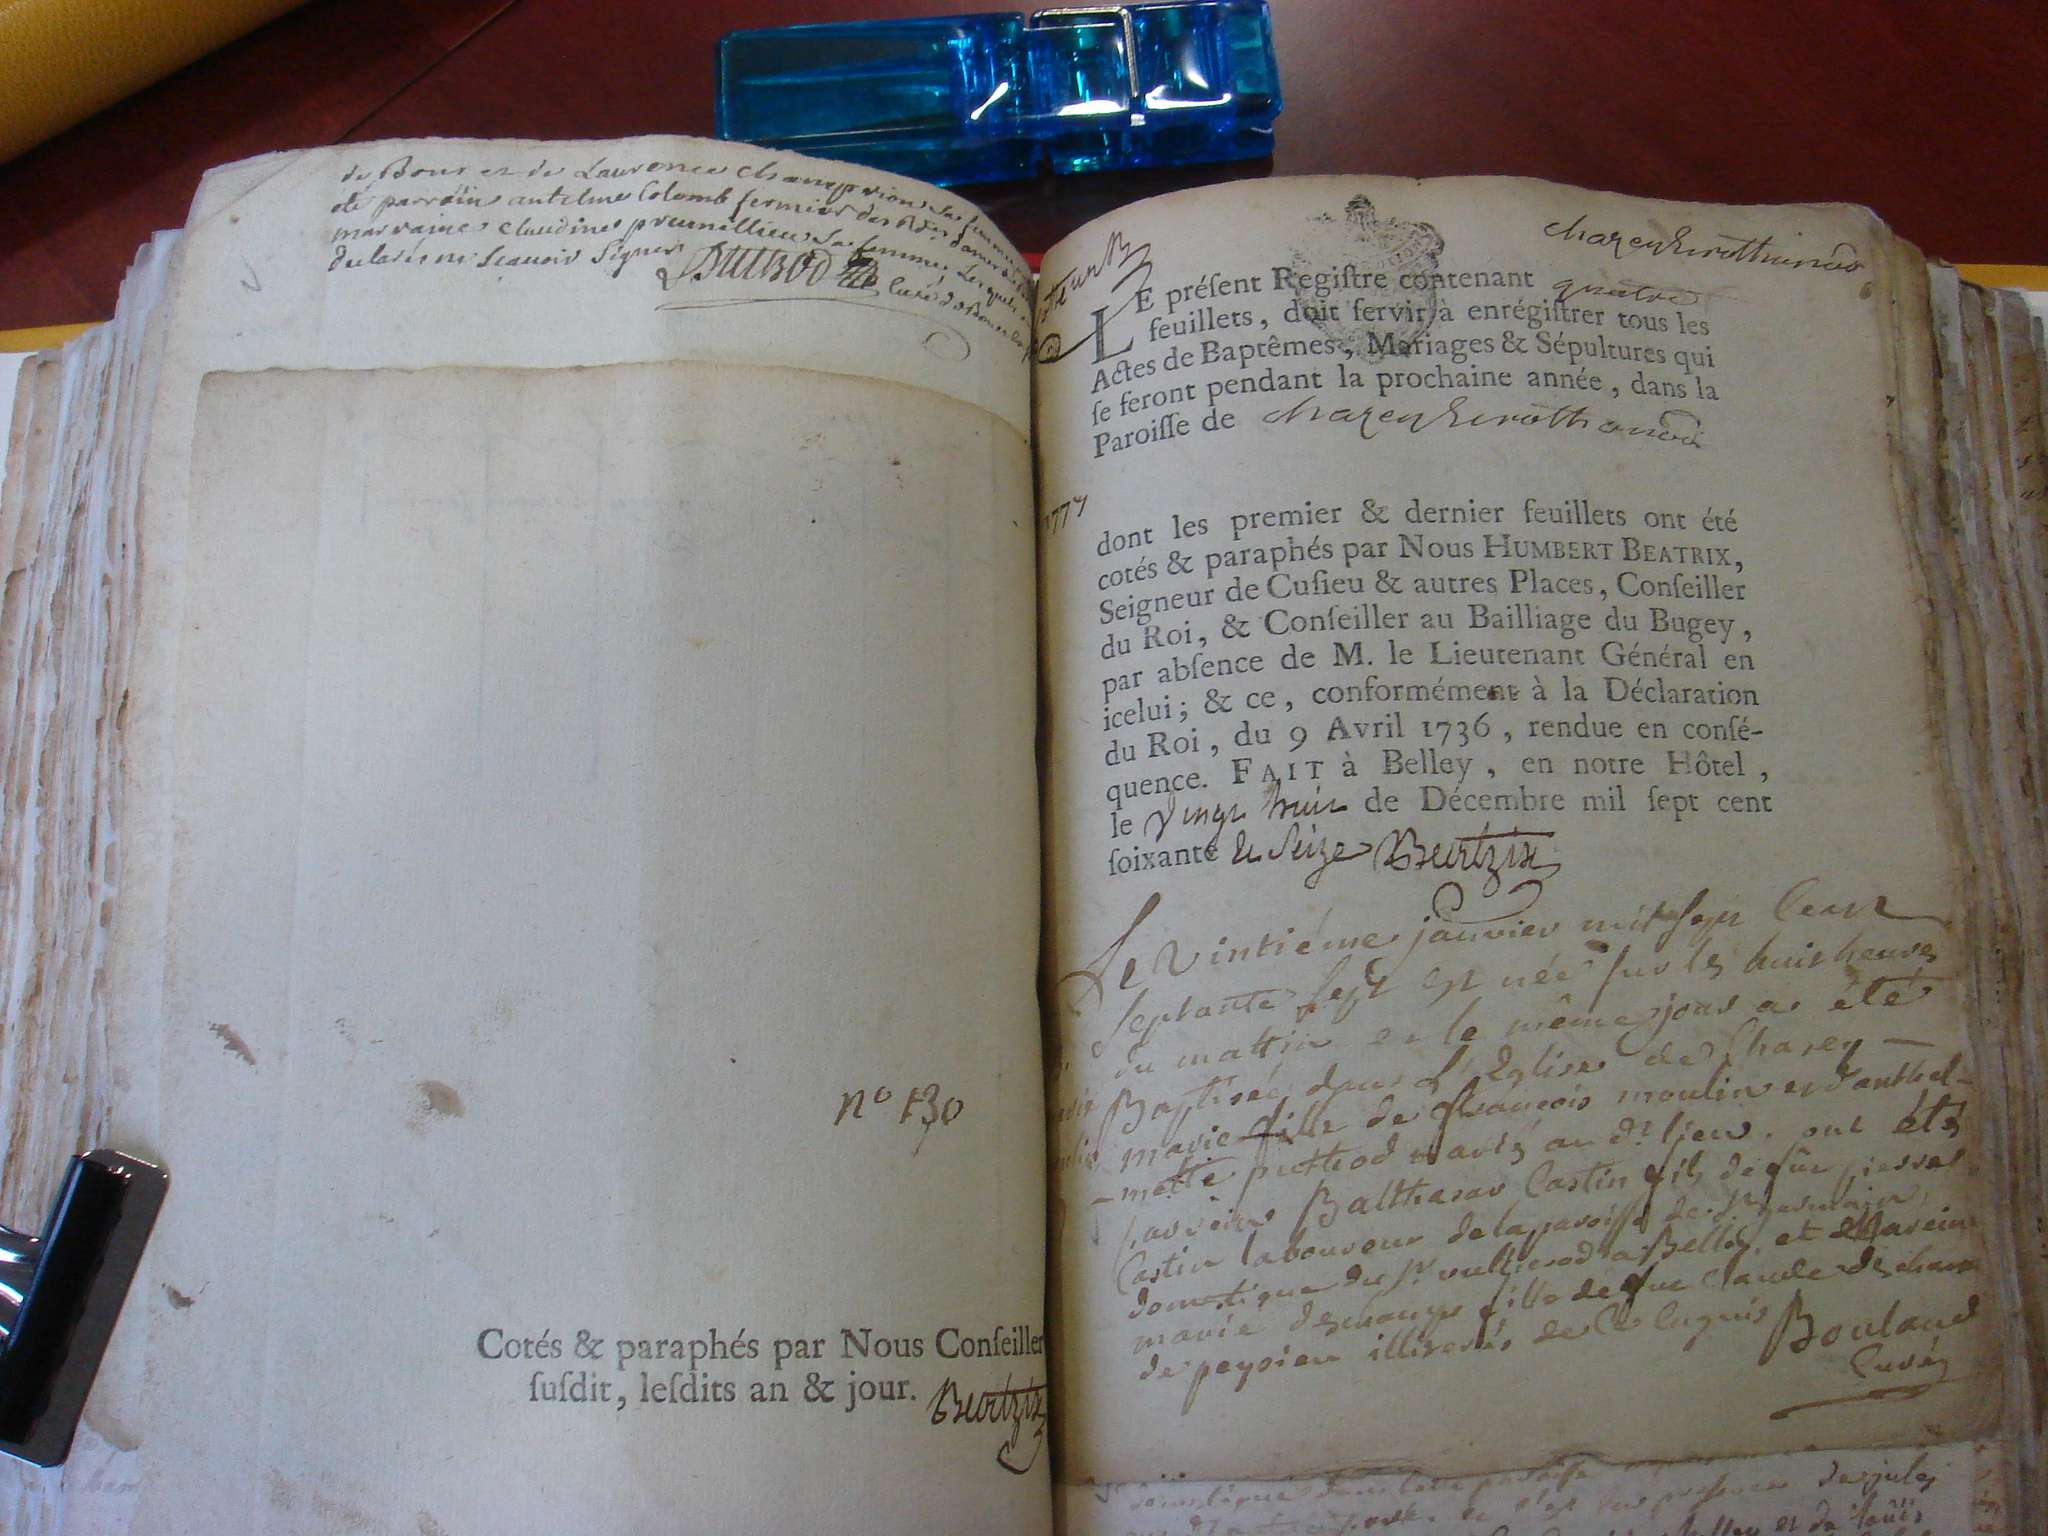 de Bour et de Laurence Champrion sa femme
été parrain antelme Colomb fermier des
marraine claudine preunillieu sa femme, lesquels
declaré ne scauoir signer
curé
n° 130
Cotés & paraphés par Nous Conſeiller
ſuſdit, leſdits an & jour. Beatrix
1777
LE préſent Regiſtre contenant quatre
feuillets, doit ſervir à enrégiſtrer tous les
Actes de Baptêmes, Mariages & Sépultures qui
ſe feront pendant la prochaine année, dans la
Paroiſſe de
dont les premier & dernier feuillets ont été
cotés & paraphés par Nous HUMBERT BEATRIX,
Seigneur de Cuſieu & autres Places, Conſeiller
du Roi, & Conſeiller au Bailliage du Bugey,
par abſence de M. le Lieutenant Général en
icelui; & ce, conformément à la Déclaration
du Roi, du 9 Avril 1736, rendue en conſé-
quence. FAIT à Belley, en notre Hôtel,
le vingt huit de Décembre mil ſept cent
ſoixante et seize Beatrix
Le vintiéme janvier mil sept Cent
septante sept est née sur les huit heures
du mattin et le même jour a été
Baptisée dans L'Eglise de Chazey
marie fille de françois moulin et d'anthel-
-mette puthod mariés au dt lieu. ont été
parrein Balthasar Castin fils de fûe pierre
Castin laboureur de la paroisse de St germain
domestique du Sr à Belley et Mareine
marie deschamps fille de fue claude deschamp
de peyzieu illiterés de Bouland
Curé